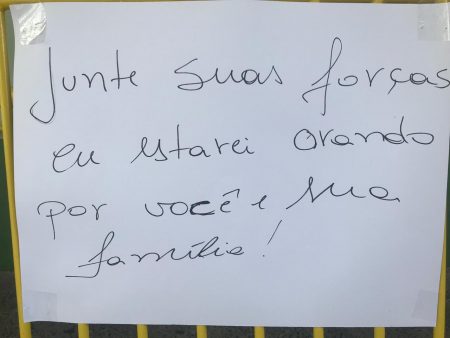 Junte suas forças
eu estarei orando
por você e sua
família!